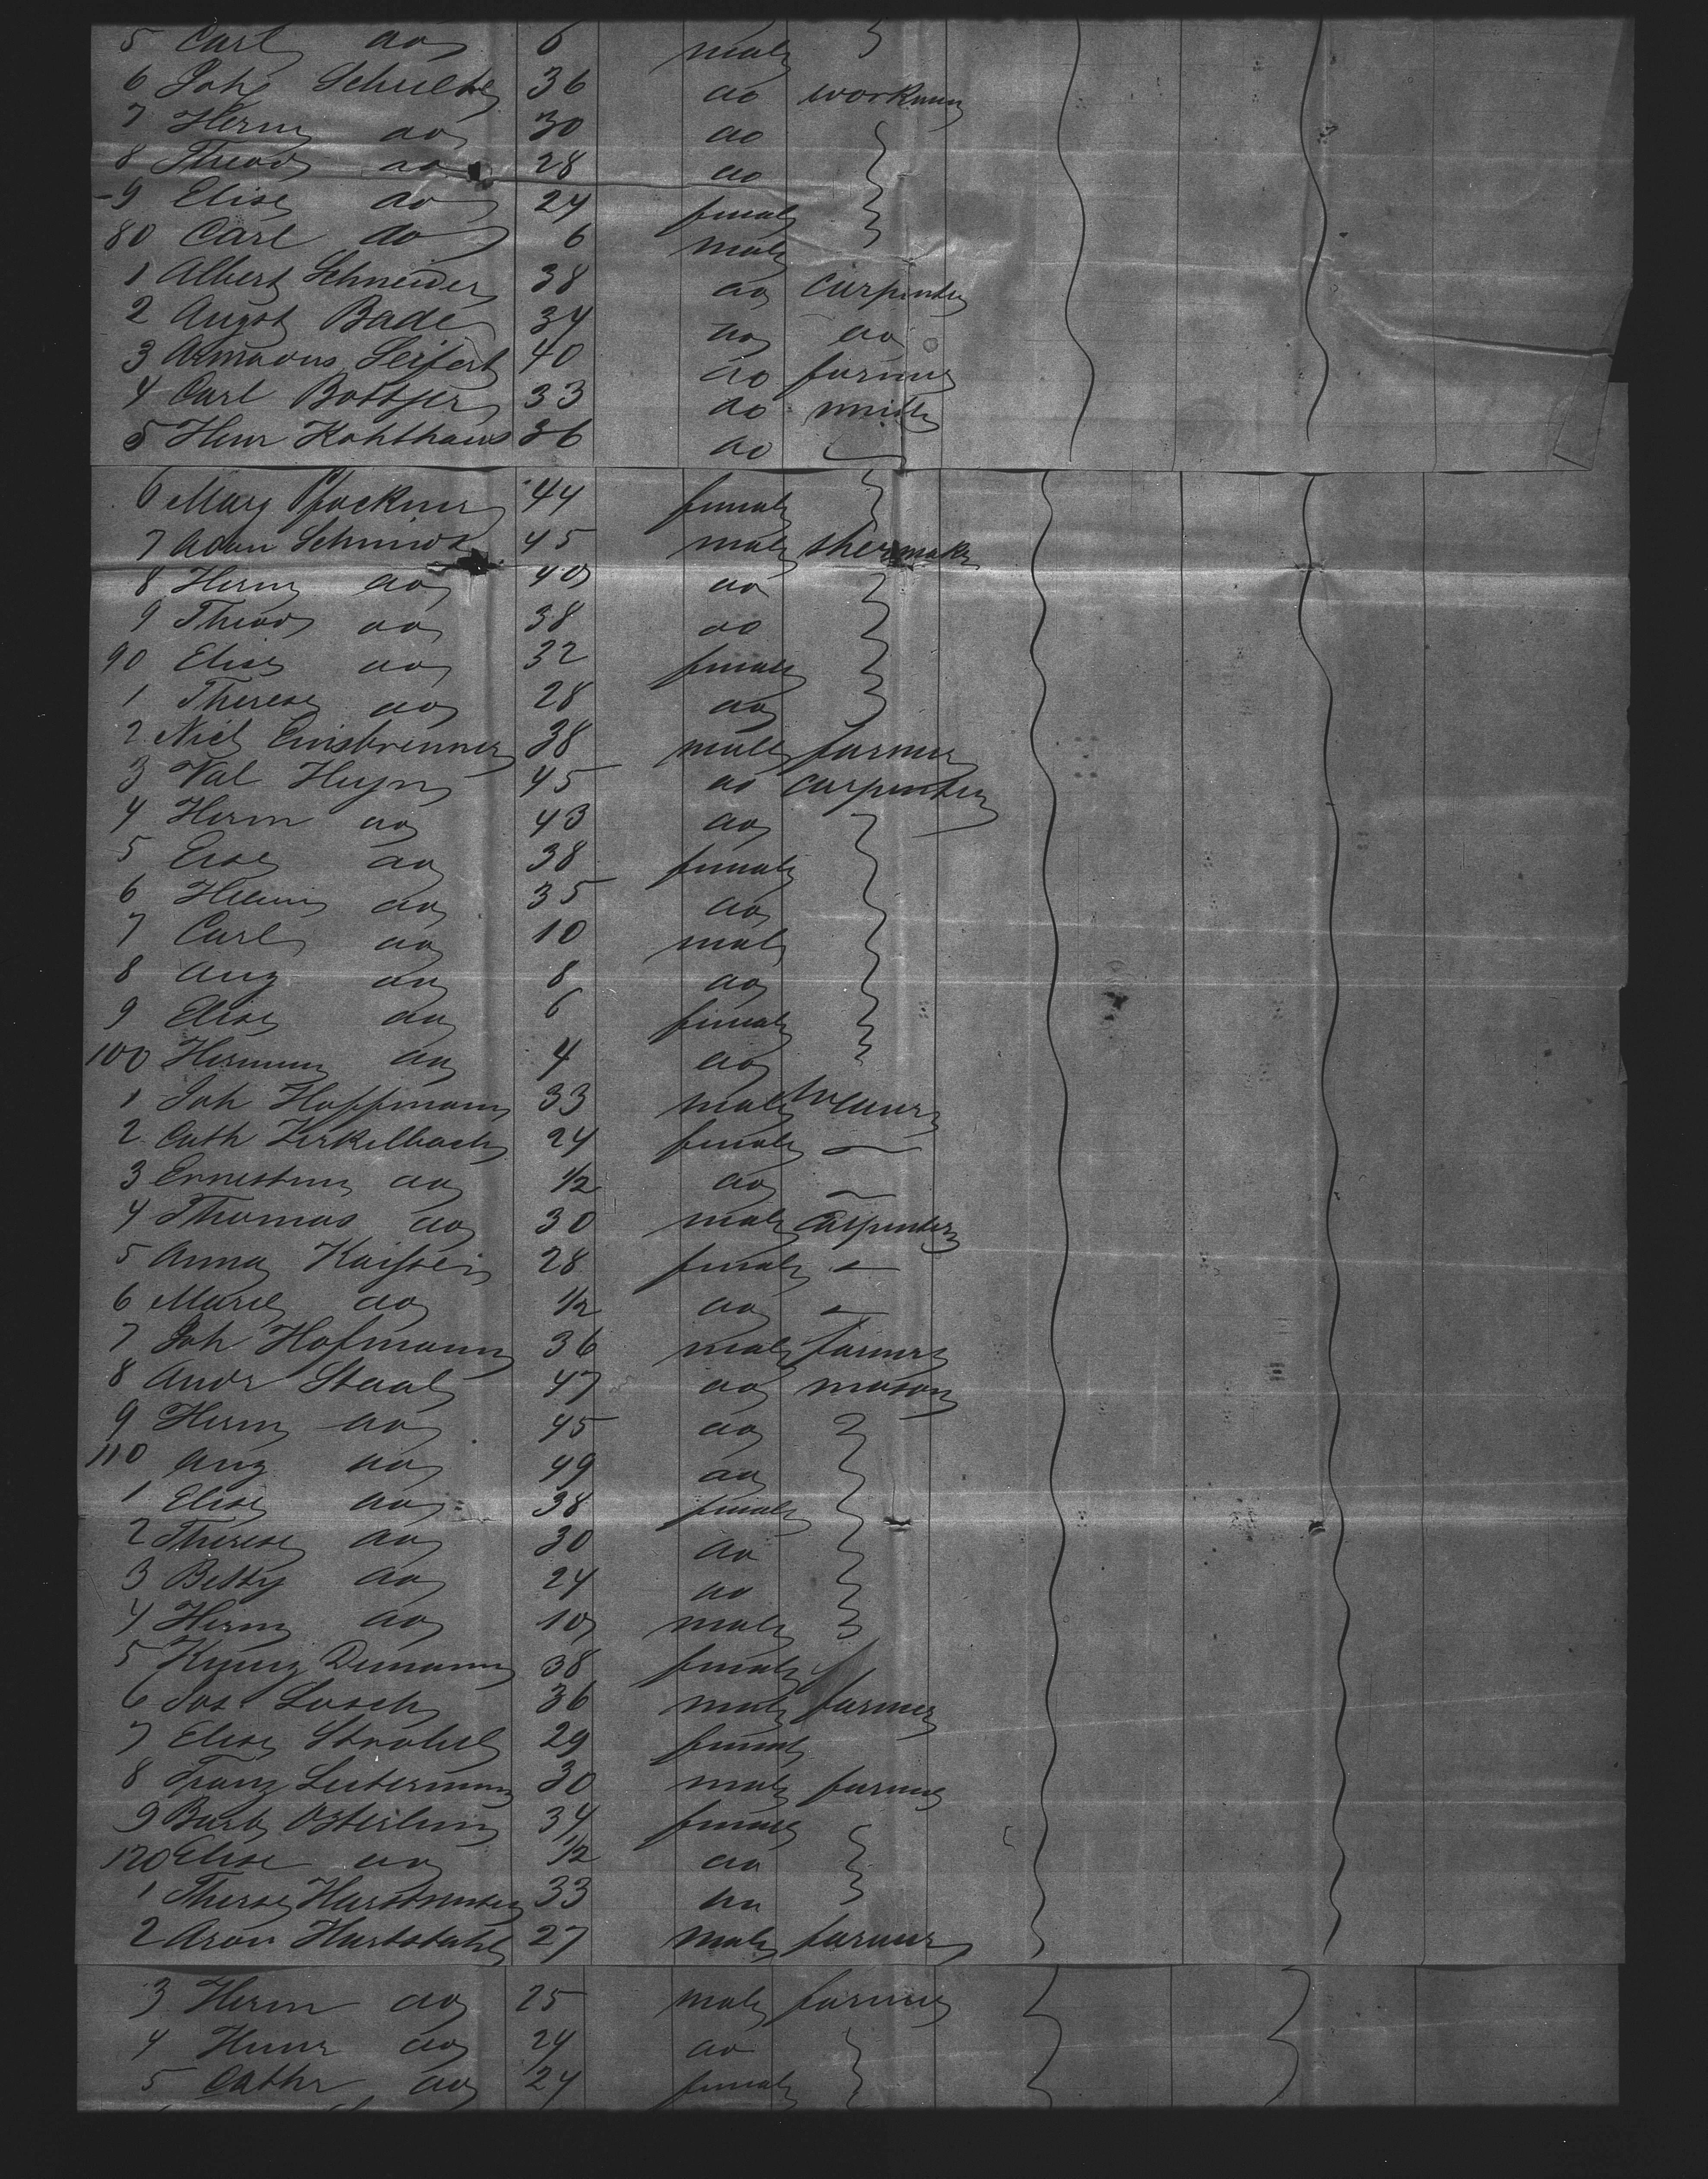 5 Carl do 6 male
6 Joh Schulte 36 do workman
7 Herm do 30 do
8 Theod do 28 do
9 Elise do 24 female
80 Carl do 6 male
1 Albert Schneider 38 do carpenter
2 Augst Bade 34 do do
3 Amadus Seifert 40 do farmer
4 Carl Bottjer 33 do
5 Heinr Kohlhaus 36 do
6 Marg 44 female
7 Adam Schmidt 45 male shoemaker
8 Herm do 40 do
9 Theod do 38 do
90 Elise do 32 female
1 Therese do 28 do
2 38 male farmer
3 Val Heyn 45 do carpenter
4 Herm do 43 do
5 Elise do 38 female
6 do 35 do
7 Carl do 10 male
8 Aug do 8 do
9 Elise do 6 female
100 do 4 do
1 Joh Hoffmann 33 male
2 Cath Zirkelbach 24 female —
3 Ernestine do 1/2 do —
4 Thomas do 30 male carpenter
5 Anna 28 female —
6 Marie do 1/2 do —
7 Joh Hofmann 36 male farmer
8 Andr Staal 47 do mason
9 Herm do 45 do
110 Aug do 49 do
1 Elise do 38 female
2 Therese do 30 do
3 Betty do 24 do
4 Herm do 10 male
5 38 female
6 Jos Losch 36 male farmer
7 Elise Strobel 29 female
8 Franz 30 male farmer
9 Barb 34 female
120 Elise do 1/2 do
1 Therese 33 do
2 Aron 27 male farmer
3 Herm do 25 male farmer
4 Heinr do 24 do
5 Cathr do 24 female